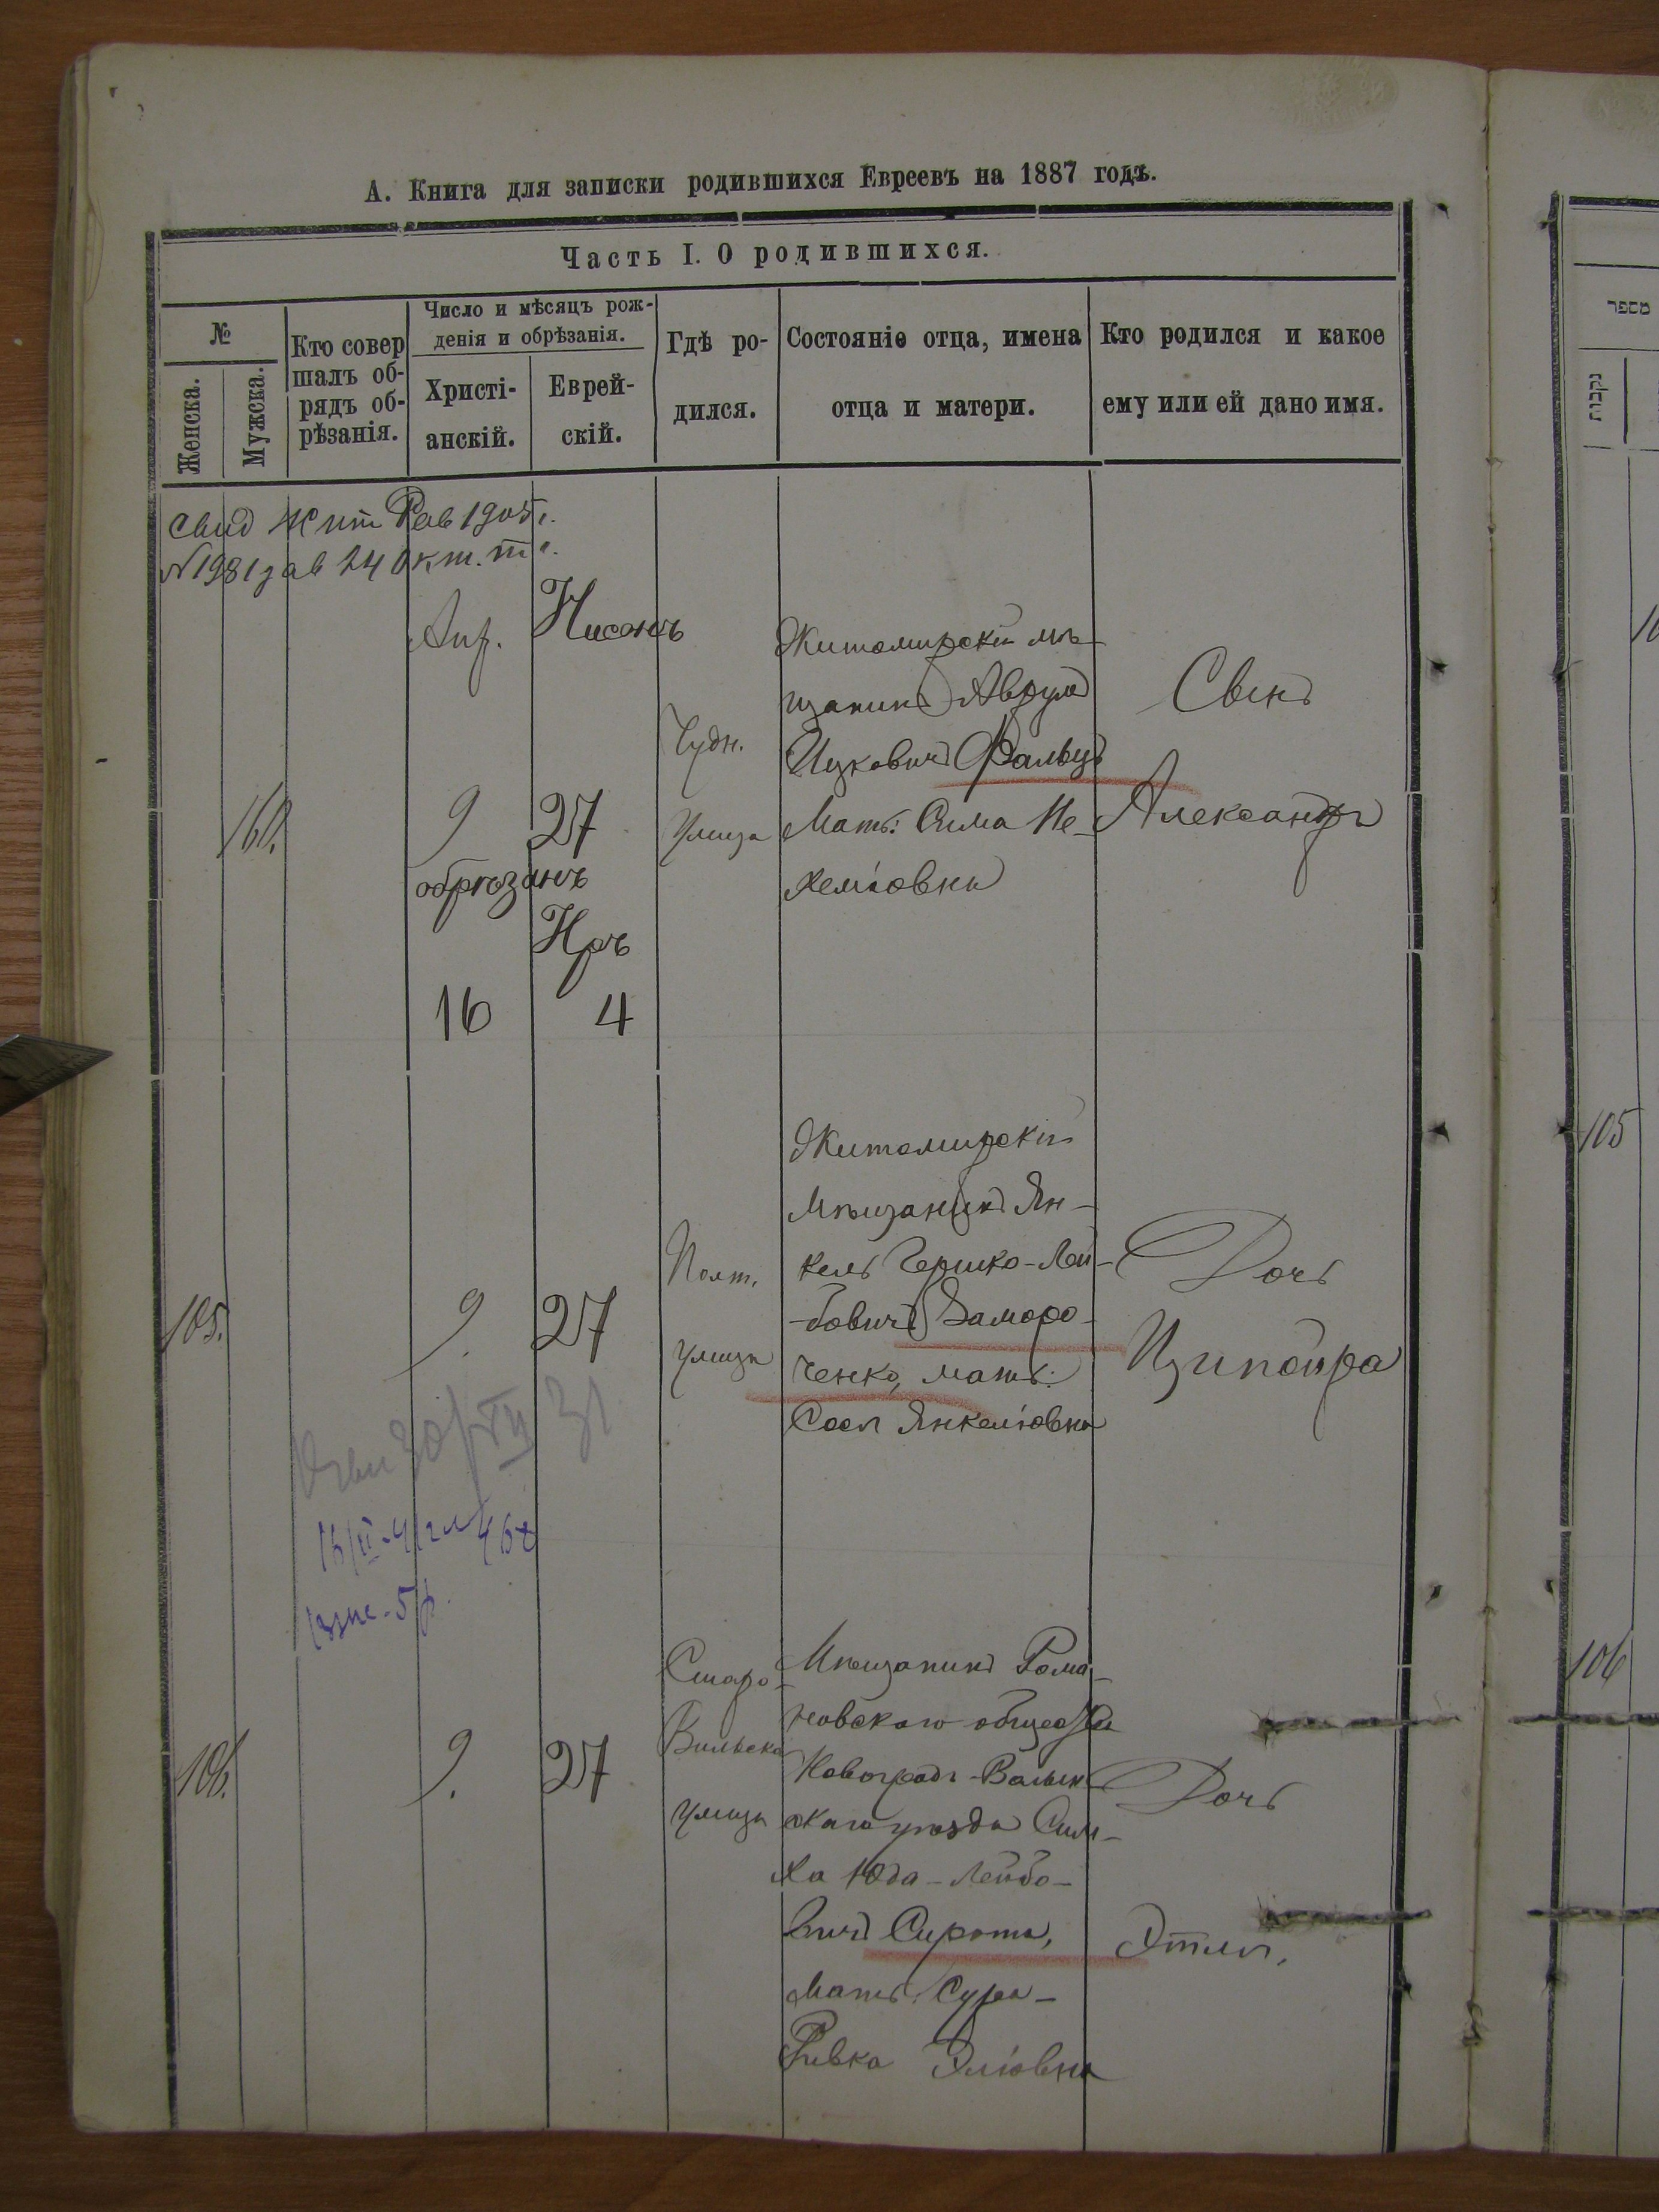 А. Книга для записки родившихся Евреевъ на 1887 годъ.
Часть I. О родившихся.
№
Женска.
Мужска.
Кто совер
шалъ об-
рядъ об-
рѣзанія.
Число и мѣсяцъ рож-
денія и обрѣзанія.
Христі-
анскій.
Еврей-
скій.
Гдѣ ро-
дился.
Состояніе отца, имена
отца и матери.
Кто родился и какое
ему или ей дано имя.
מספר
נקבות
Свид Жит Рав 1905 г.
№1981 24 Окт. т г.
160.
Апр.
Нисанъ
9
27
обрѣзанъ
Іръ
16
4
Чудн.
Улица
Житомирскій мѣ-
щанинъ Аврумъ
Ицковичъ Фальцъ
Мать: Сима Не-
хеміовна
Сынъ
Александръ
105.
9
27
Полт.
улица
Житомирскій
Мѣщанинъ Ян-
кель Гершко-Лей-
бовичъ Заморо-
ченко, мать:
Сося Янкеліовна
Дочь
Ципойра
106.
9.
27
Старо-
Вильска
улица
Мѣщанинъ Рома-
новскаго общества
Новоградъ-Волын-
скаго уѣзда Сим-
ха Юда-Лейбо-
вичъ Сирота,
Мать: Сура-
Ривка Эліовна
Дочь
Этля,
105
106